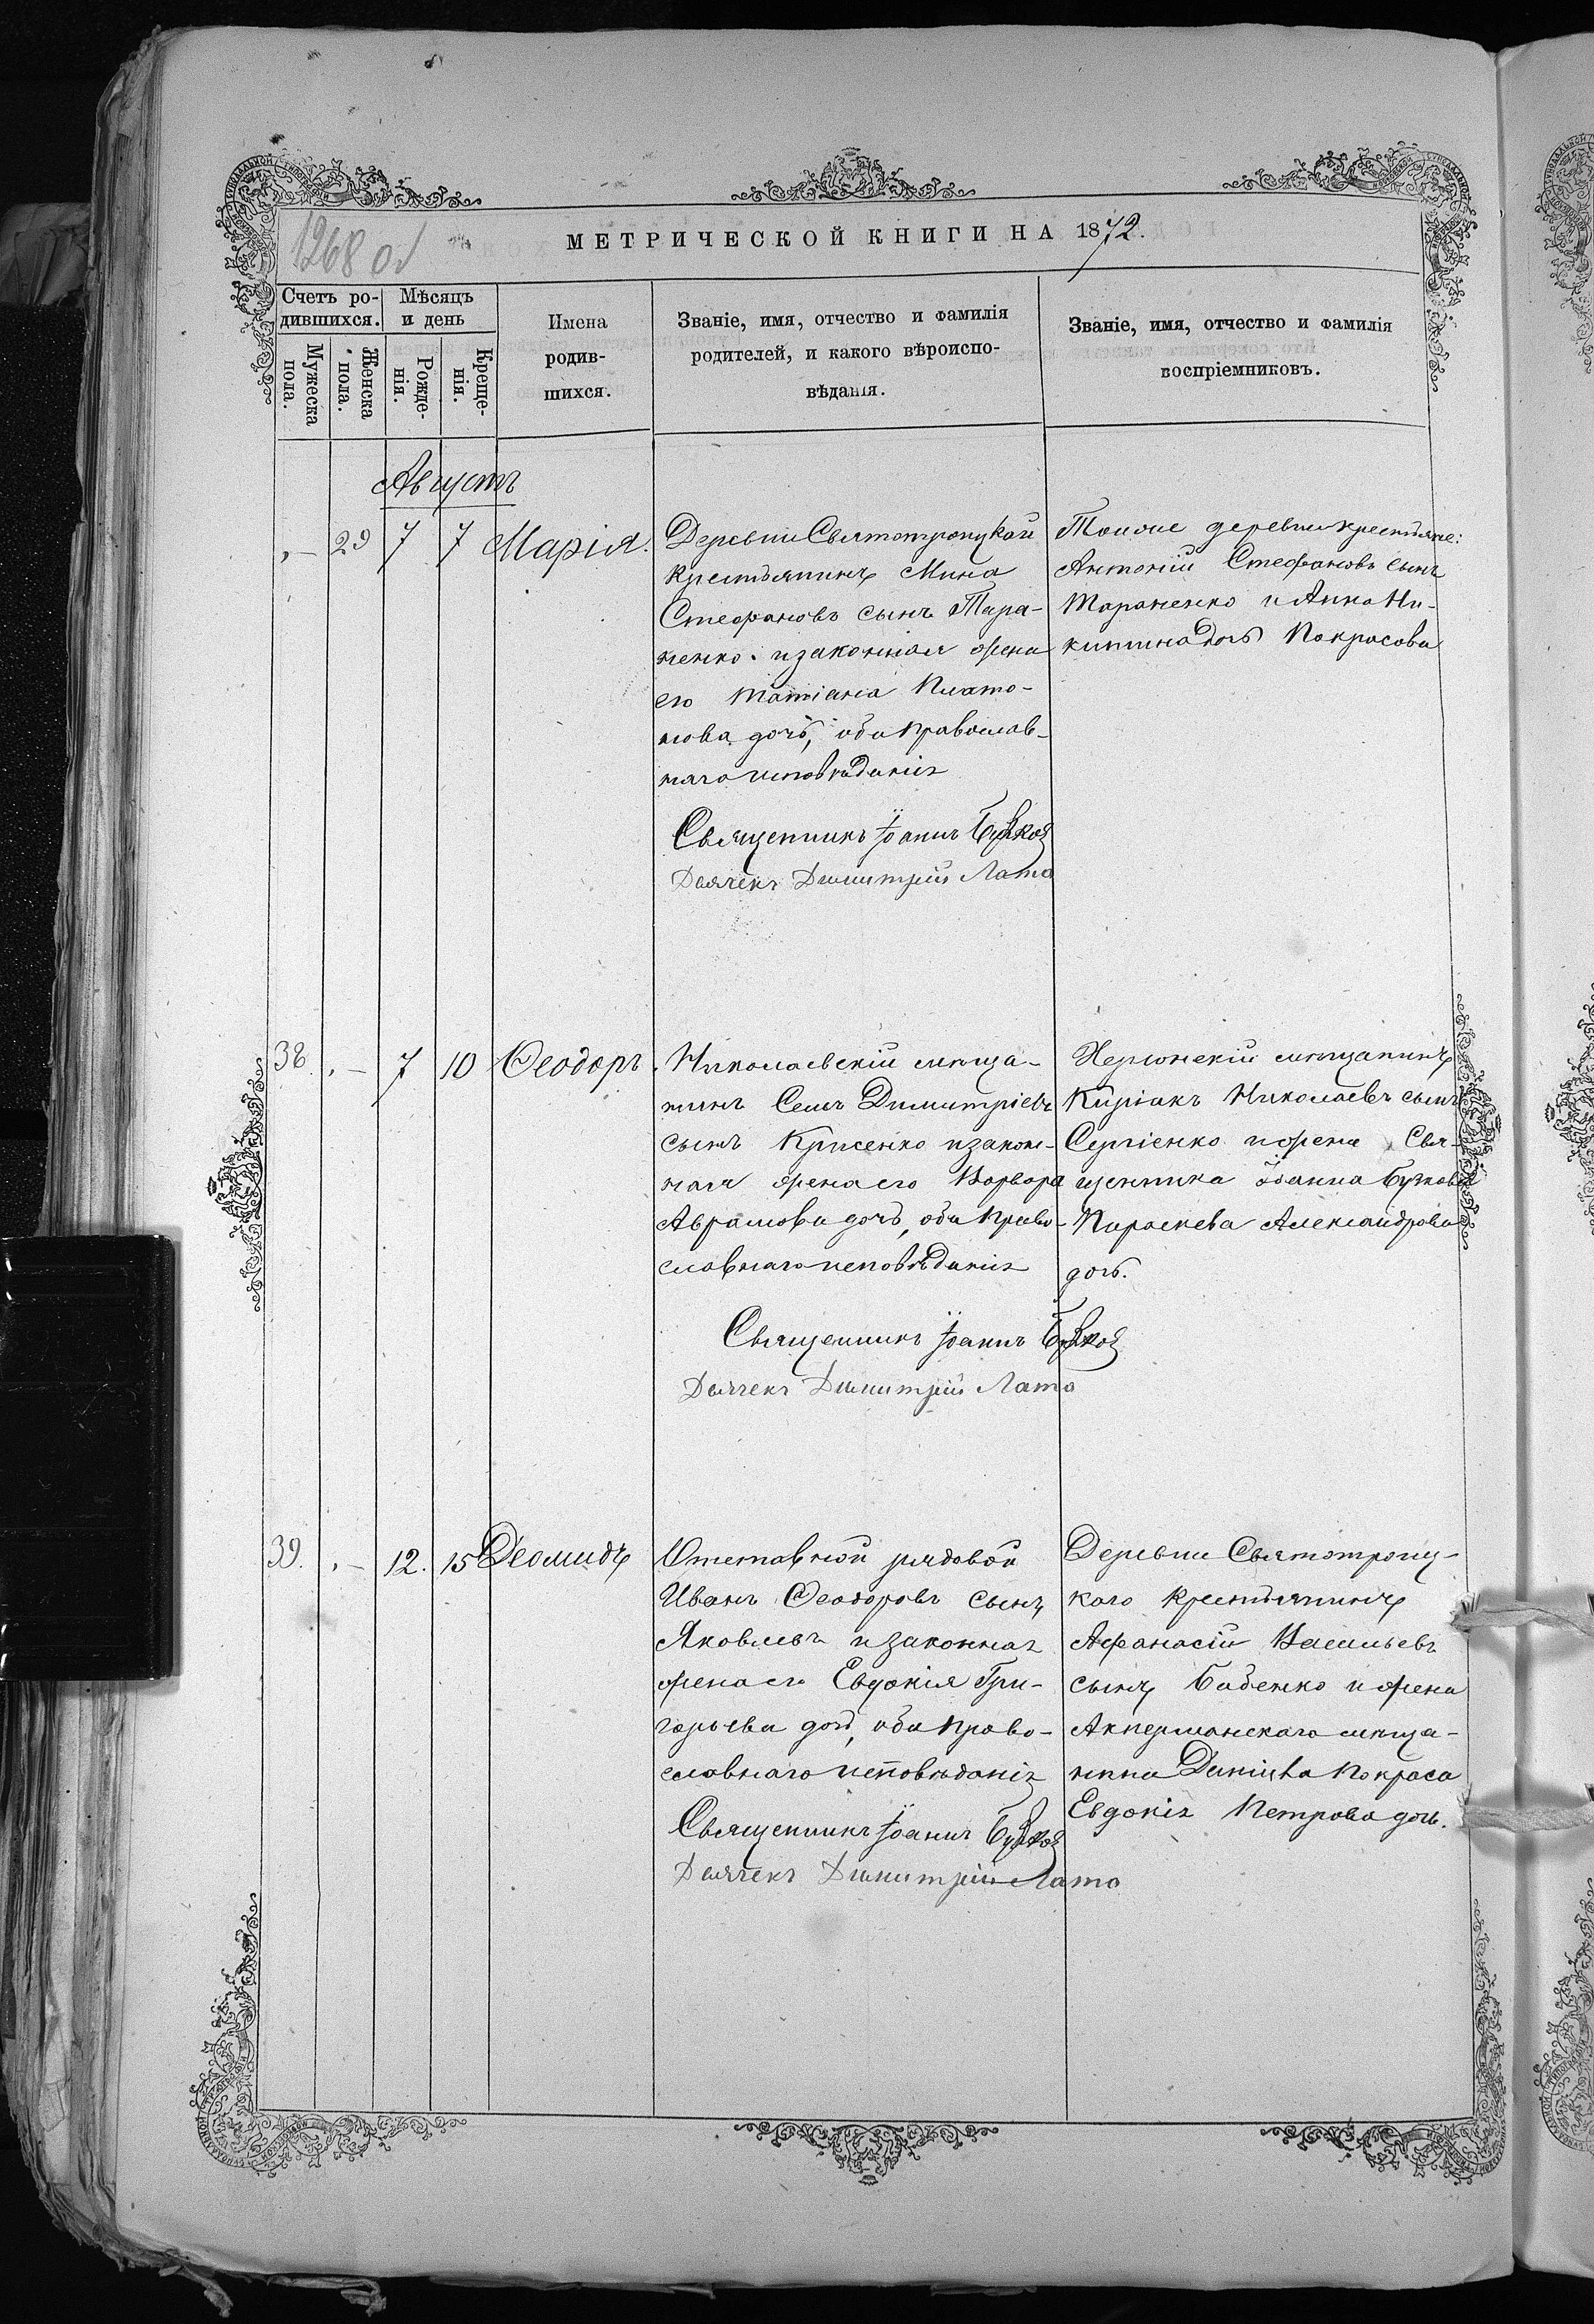 1268 об
МЕТРИЧЕСКОЙ КНИГИ НА 1872.
Счетъ ро-
дившихся.
Мѣсяцъ
и день
Мужеска
пола.
Женска
пола.
Рожде-
нія.
Креще-
нія.
Имена
родив-
шихся.
Званіе, имя, отчество и фамилія
родителей, и какого вѣроиспо-
вѣданія.
Званіе, имя, отчество и фамилія
воспріемниковъ.
Августъ
„ — 29 7 7 Марія.
Деревни Святотроицкой
крестьянинъ Мина
Стефановъ сынъ Тара-
ненко и законная жена
его Татіана Плато-
нова дочь, оба православ-
наго исповѣданія
Священникъ Іоаннъ
Дьячекъ Димитрій Лато
Тойже деревни крестьяне:
Антоній Стефановъ сынъ
Тараненко и Анна Ни-
китина дочь Покрасова
38. „ — 7 10 Ѳеодоръ.
Николаевскій мѣща-
нинъ Димитріевъ
сынъ и закон-
ная жена его Варвара
Аврамова дочь, оба право-
славнаго исповѣданія
Священникъ Іоаннъ
Дьячекъ Димитрій Лато
Херсонскій мѣщанинъ
Киріакъ Николаевъ сынъ
Сергіенко и жена Свя-
щенника Іоанна
Параскева Александрова
дочь.
39. „ — 12. 15 Діомидъ
Отставной рядовой
Иванъ Ѳеодоровъ сынъ
Яковлевъ и законная
жена его Евдокія Гри-
горьева дочь, оба право-
славнаго исповѣданія
Священникъ Іоаннъ
Дьячекъ Димитрій Лато
Деревни Святотроиц-
кого крестьянинъ
Афанасій Васильевъ
сынъ Бабенко и жена
Аккерманскаго мѣща-
нина Даніила Покраса
Евдокія Петрова дочь.